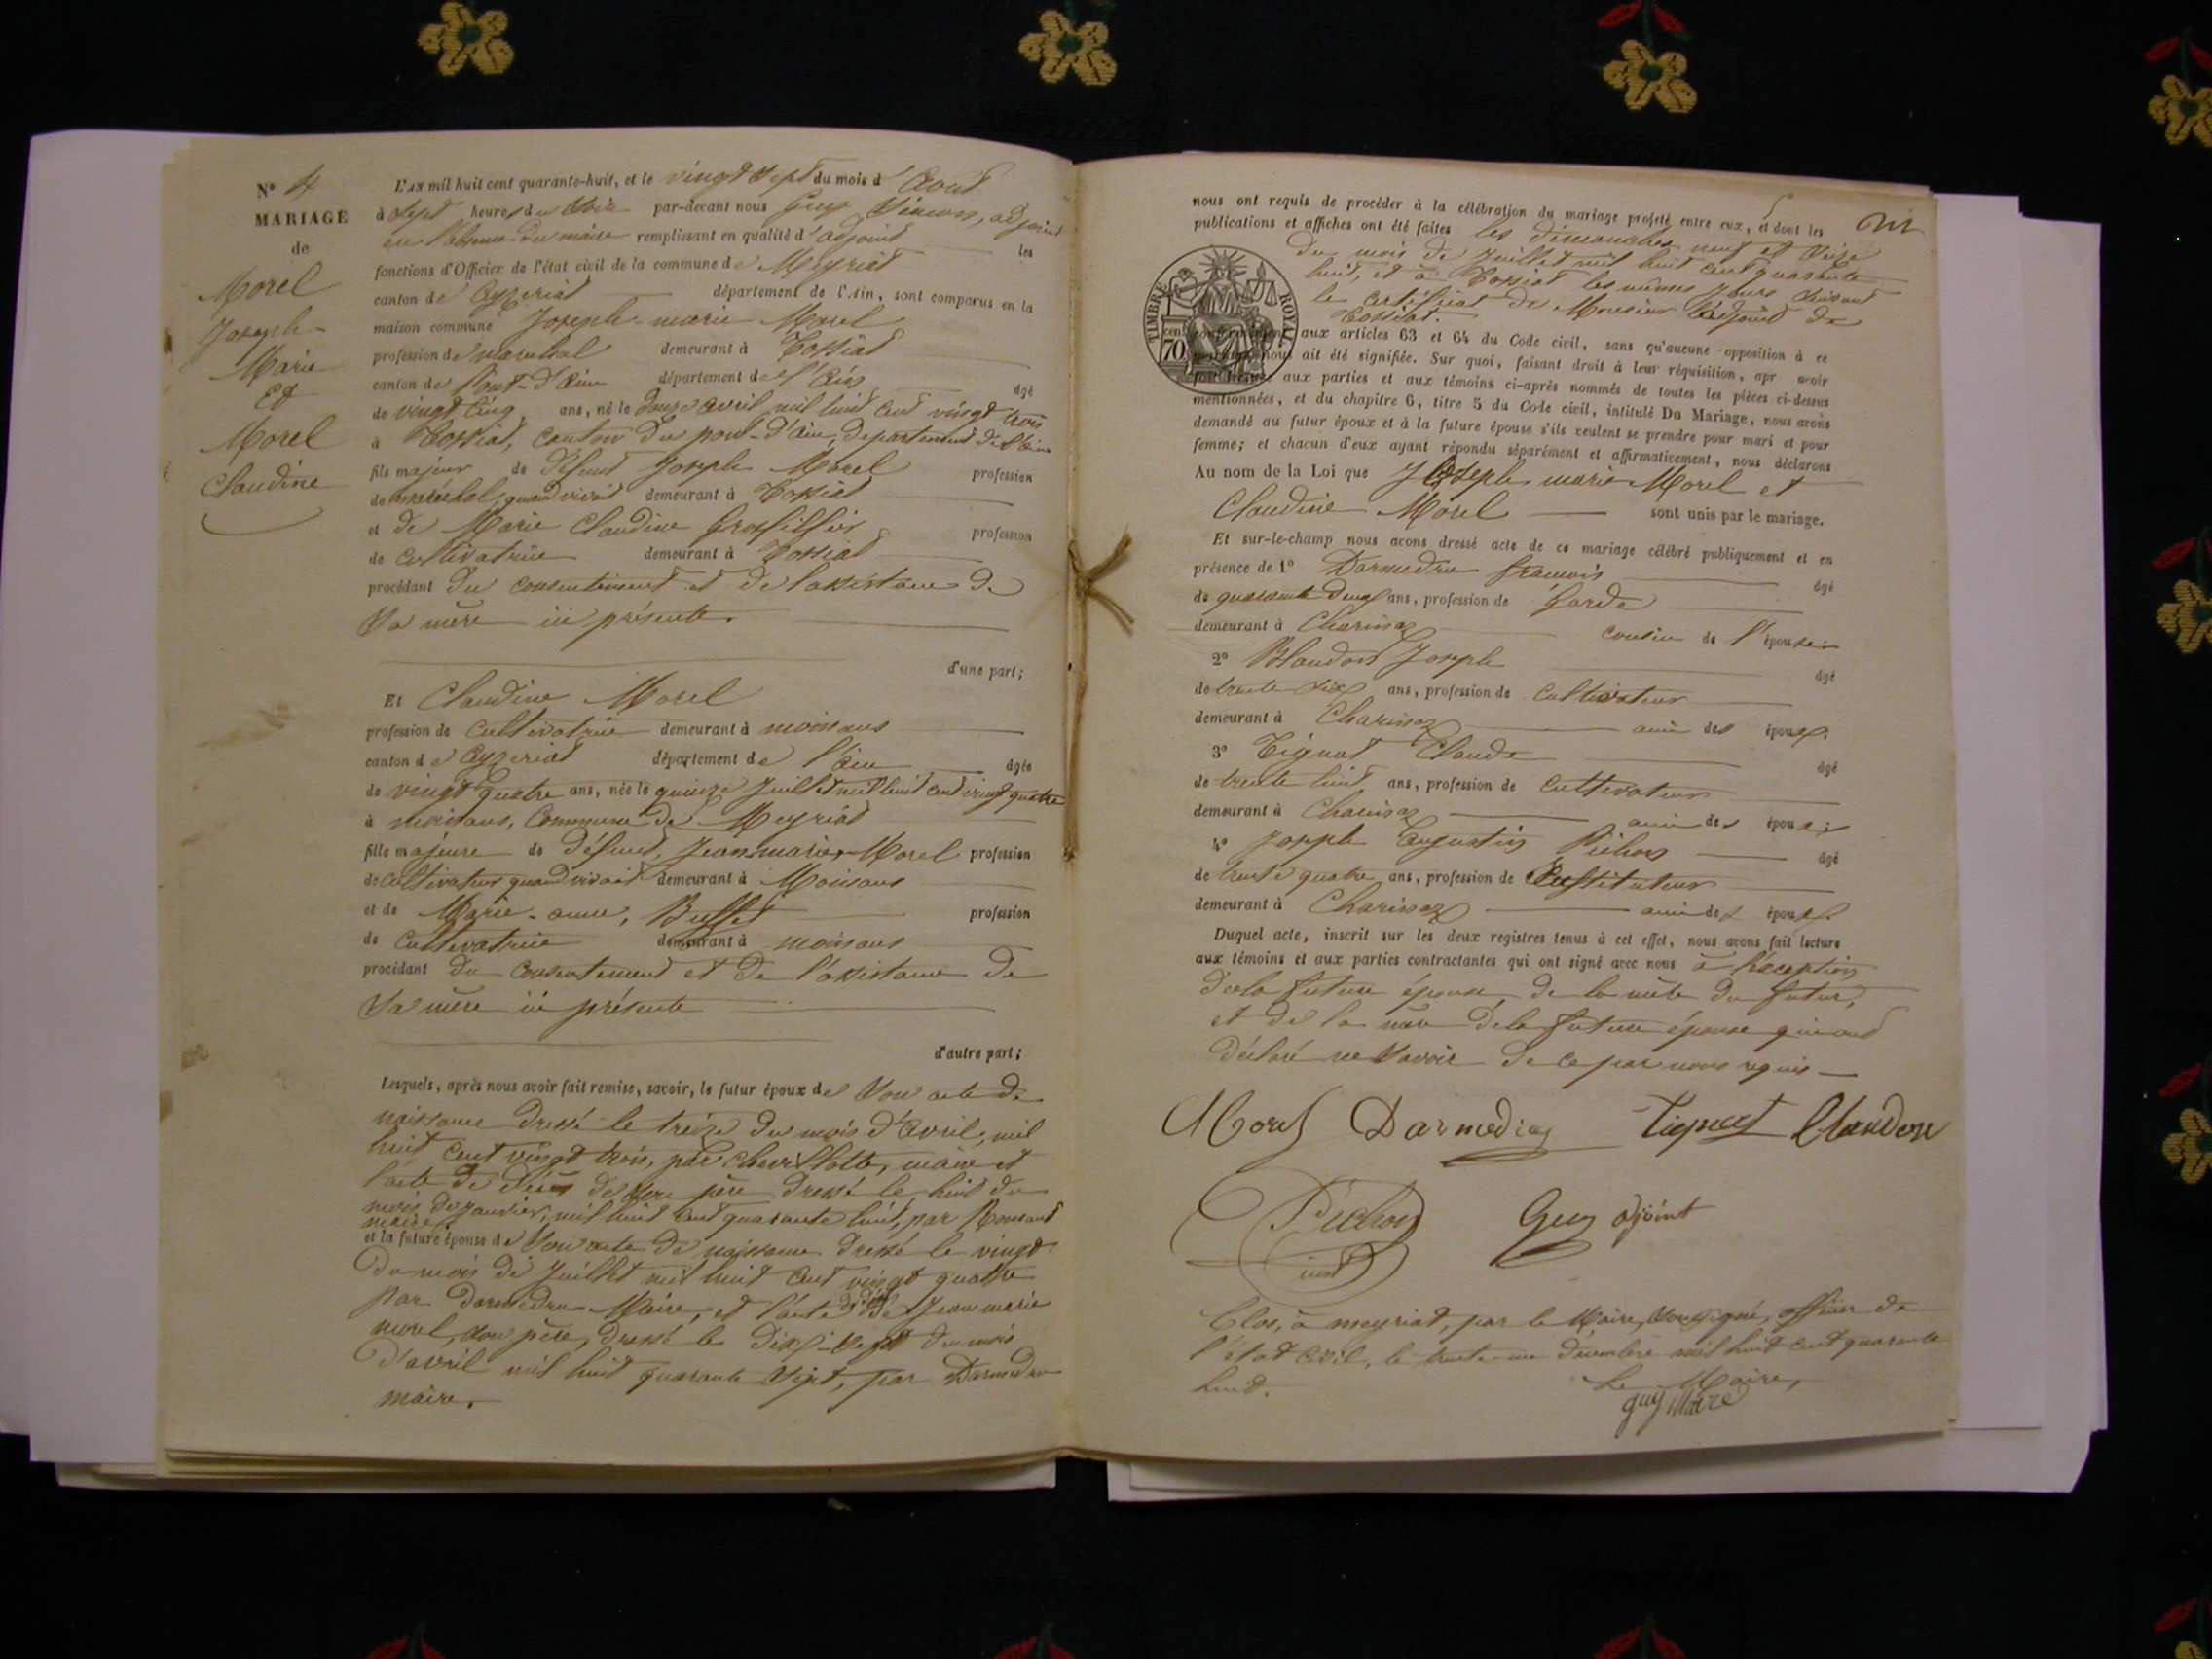 N° 4
MARIAGE
de
Morel
Joseph-
Marie
Et
Morel
Claudine
L'AN mil huit cent quarante-huit, et le vingt sept du mois d'Aout
à sept heures du soir par-devant nous Guy Simeon, adjoint
en l'absence du maire remplissant en qualité d'adjoint les
fonctions d'Officier de l'état civil de la commune de Meyriat
canton de Ceyzeriat département de l'Ain, sont comparus en la
maison commune Joseph-marie Morel
profession de marechal demeurant à Tossiat
canton de Pont-d'Ain département de l'Ain âgé
de vingt cinq ans, né le douze avril mil huit cent vingt trois
à Tossiat, canton du pont-d'ain, departement de l'ain
fils majeur de défunt Joseph Morel profession
de maréchal, quand vivait demeurant à Tossiat
et de Marie Claudine profession
de cultivatrice demeurant à Tossiat
procédant du consentement et de l'assistance de
sa mère ici présente.
d'une part;
Et Claudine Morel
profession de cultivatrice demeurant à moinans
canton de Ceyzeriat département de l'ain âgée
de vingt quatre ans, née le quinze Juillet mil huit cent vingt quatre
à moinans, Commune de Meyriat
fille majeure de défunt, Jean marie Morel profession
de cultivateur quand vivait demeurant à Moinans
et de Marie-anne, Buffet profession
de cultivatrice demeurant à moinans
procédant du consentement et de l'assistance de
sa mère ici présente
d'autre part;
Lesquels, après nous avoir fait remise, savoir, le futur époux de son acte de
naissance dressé le treize du mois d'avril, mil
huit cent vingt trois, par Chevillotte, maire et
l'acte de décès de son père dressé le huit du
mois de janvier, mil huit cent quarante huit, par
maire
et la future épouse de son acte de naissance dressé le vingt
du mois de Juillet mil huit cent vingt quatre
par Darmedru Maire, et l'acte de décès de Jean marie
morel, son père, dressé le dix-sept du mois
d'avril mil huit quarante sept, par Darmedru
maire.
nous ont requis de procéder à la célébration du mariage projeté entre eux, et dont les
publications et affiches ont été faites les dimanches neuf et seize
du mois de Juillet mil huit cent quarante
huit, et à Tossiat les mêmes jours suivant
le certificat de Monsieur l'adjoint de
Tossiat.
TIMBRE ROYAL
cen. 70
conformément aux articles 63 et 64 du Code civil, sans qu'aucune opposition à ce
mariage nous ait été signifiée. Sur quoi, faisant droit à leur réquisition, apr avoir
fait lecture aux parties et aux témoins ci-après nommés de toutes les pièces ci-dessus
mentionnées, et du chapitre 6, titre 5 du Code civil, intitulé Du Mariage, nous avons
demandé au futur époux et à la future épouse s'ils veulent se prendre pour mari et pour
femme; et chacun d'eux ayant répondu séparément et affirmativement, nous déclarons
Au nom de la Loi que Joseph marie Morel et
Claudine Morel sont unis par le mariage.
Et sur-le-champ nous avons dressé acte de ce mariage célébré publiquement et en
présence de 1° Darmedru francois âgé
de quarante deux ans, profession de Garde
demeurant à Charinaz cousin de l'épouse
2° Blandon Joseph âgé
de trente six ans, profession de Cultivateur
demeurant à Charinaz ami des époux;
3° Tignat Claude âgé
de trente huit ans, profession de Cultivateur
demeurant à Charinaz ami des époux;
4° Joseph Augustin Pichon âgé
de trente quatre ans, profession de Instituteur
demeurant à Charinaz ami des époux.
Duquel acte, inscrit sur les deux registres tenus à cet effet, nous avons fait lecture
aux témoins et aux parties contractantes qui ont signé avec nous à l'exception
de la future épouse, de la mère du futur,
et de la mère de la future épouse qui ont
déclaré ne savoir de ce par nous requis
Morel Darmedru Tignat Blandon
Pichon
inst
Guy adjoint
Clos, à meyriat, par le Maire, soussigné, officier de
l'état civil, le trente un décembre mil huit cent quarante
huit.
Le Maire,
guy Maire